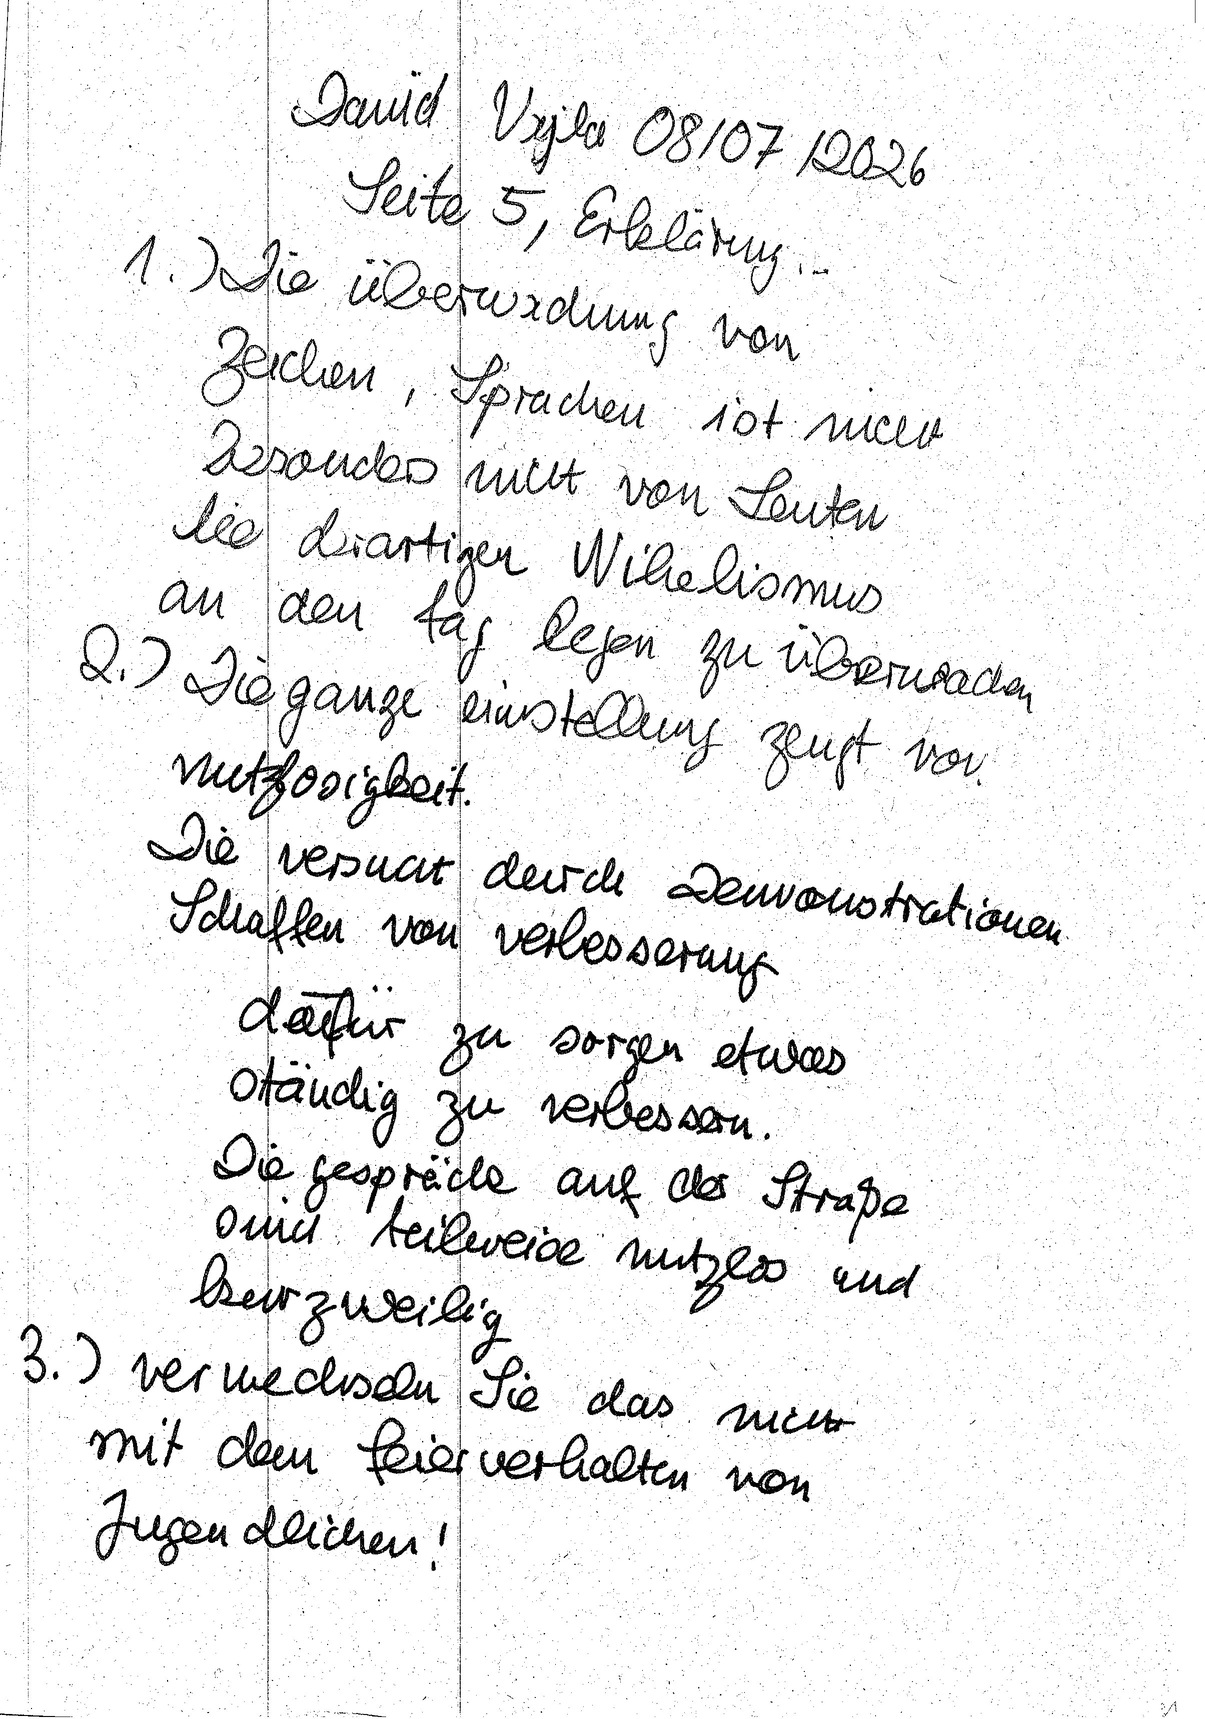 David Vujla 08/07/2026
Seite 5, Erklärung...
1.) Die überwachung von
Zeichen, Sprachen ist nicht
besonders nicht von Leuten
die derartigen Nihelismus
an den tag legen zu überwachen
2.) Die ganze einstellung zeugt von
nutzlosigkeit.
Die versucht durch Demonstrationen
Schaffen von verbesserung
dafür zu sorgen etwas
ständig zu verbessern.
Die gespräche auf der Straße
sind teilweise nutzlos und
kurzweilig
3.) verwechseln Sie das nicht
mit dem feierverhalten von
Jugendlichen!